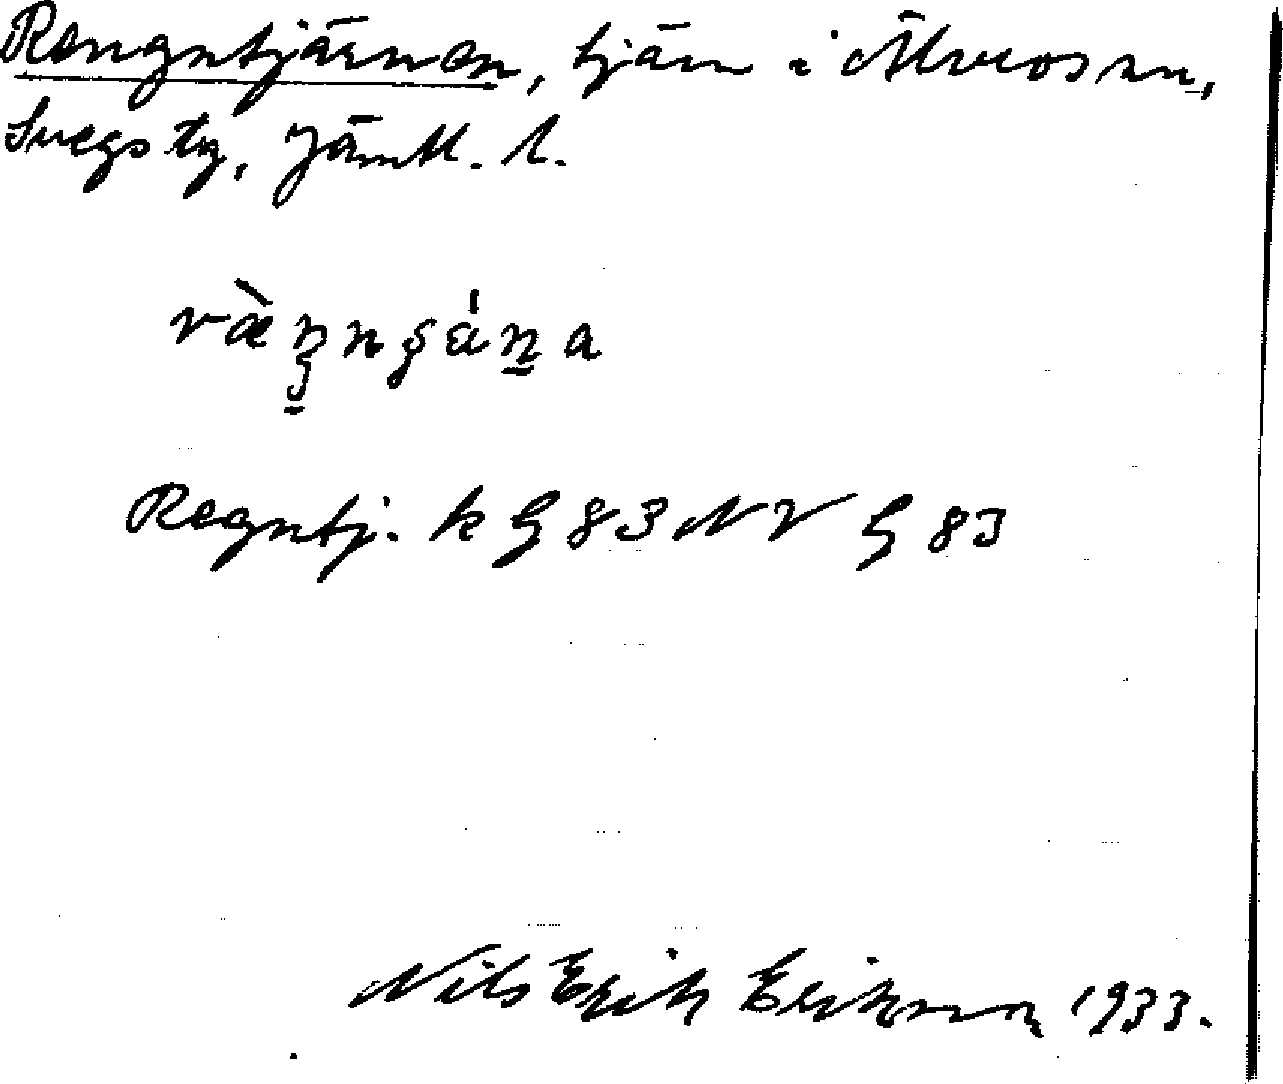 Rengntjärnen, tjärn i Älvros sn,
Svegs tg, Jämtl. l.
Regntj. k G 83 NV G 83
Nils Erik Eriksson 1933.